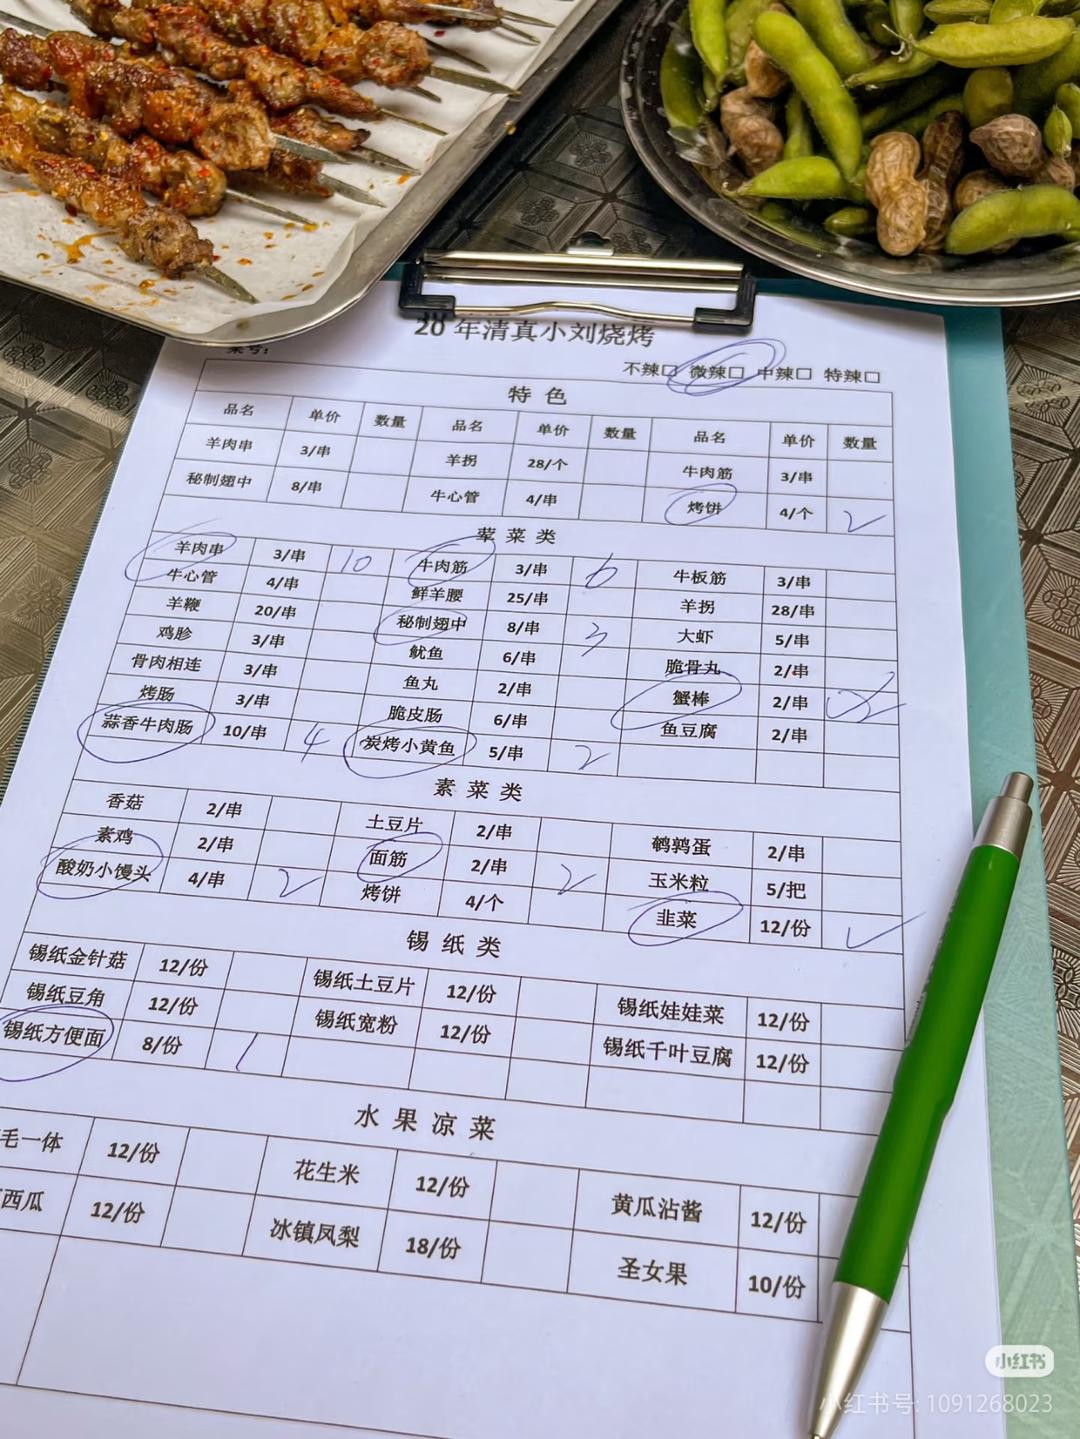 20 年清真小刘烧烤
不辣□ 微辣□ 中辣□ 特辣□
特 色
品名 单价 数量 品名 单价 数量 品名 单价 数量
羊肉串 3/串 羊拐 28/个 牛肉筋 3/串
秘制翅中 8/串 牛心管 4/串 烤饼 4/个 2
荤 菜 类
羊肉串 3/串 10 牛肉筋 3/串 6 牛板筋 3/串
牛心管 4/串 鲜羊腰 25/串 羊拐 28/串
羊鞭 20/串 秘制翅中 8/串 3 大虾 5/串
鸡胗 3/串 鱿鱼 6/串 脆骨丸 2/串
骨肉相连 3/串 鱼丸 2/串 蟹棒 2/串 2
烤肠 3/串 脆皮肠 6/串 鱼豆腐 2/串
蒜香牛肉肠 10/串 4 炭烤小黄鱼 5/串 2
素 菜 类
香菇 2/串 土豆片 2/串 鹌鹑蛋 2/串
素鸡 2/串 面筋 2/串 2 玉米粒 5/把
酸奶小馒头 4/串 2 烤饼 4/个 韭菜 12/份 ✓
锡 纸 类
锡纸金针菇 12/份 锡纸土豆片 12/份 锡纸娃娃菜 12/份
锡纸豆角 12/份 锡纸宽粉 12/份 锡纸千叶豆腐 12/份
锡纸方便面 8/份 1
水 果 凉 菜
毛一体 12/份 花生米 12/份 黄瓜沾酱 12/份
西瓜 12/份 冰镇凤梨 18/份 圣女果 10/份
小红书
小红书号: 1091268023